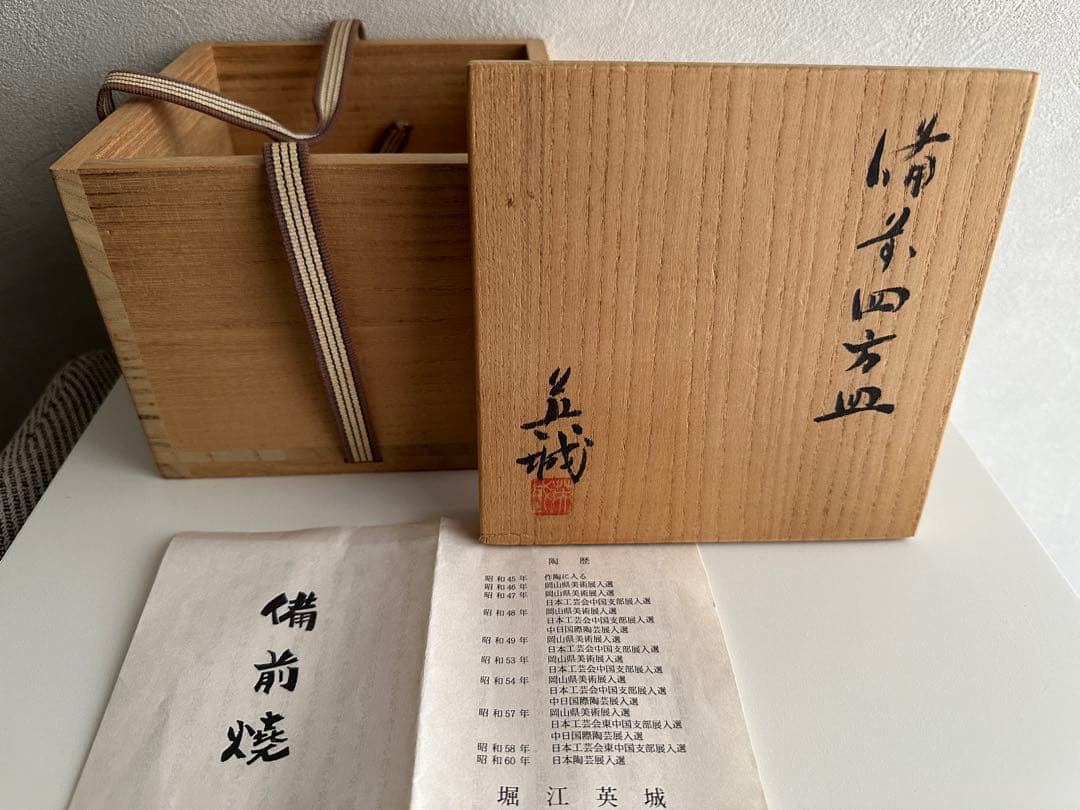 備前四方皿
英城
備前燒
陶歴
昭和45年 作陶に入る
昭和46年 岡山県美術展入選
昭和47年 岡山県美術展入選
日本工芸会中国支部展入選
昭和48年 岡山県美術展入選
日本工芸会中国支部展入選
中日国際陶芸展入選
昭和49年 岡山県美術展入選
日本工芸会中国支部展入選
昭和53年 岡山県美術展入選
日本工芸会中国支部展入選
昭和54年 岡山県美術展入選
日本工芸会中国支部展入選
中日国際陶芸展入選
昭和57年 岡山県美術展入選
日本工芸会東中国支部展入選
中日国際陶芸展入選
昭和58年 日本工芸会東中国支部展入選
昭和60年 日本陶芸展入選
堀江英城